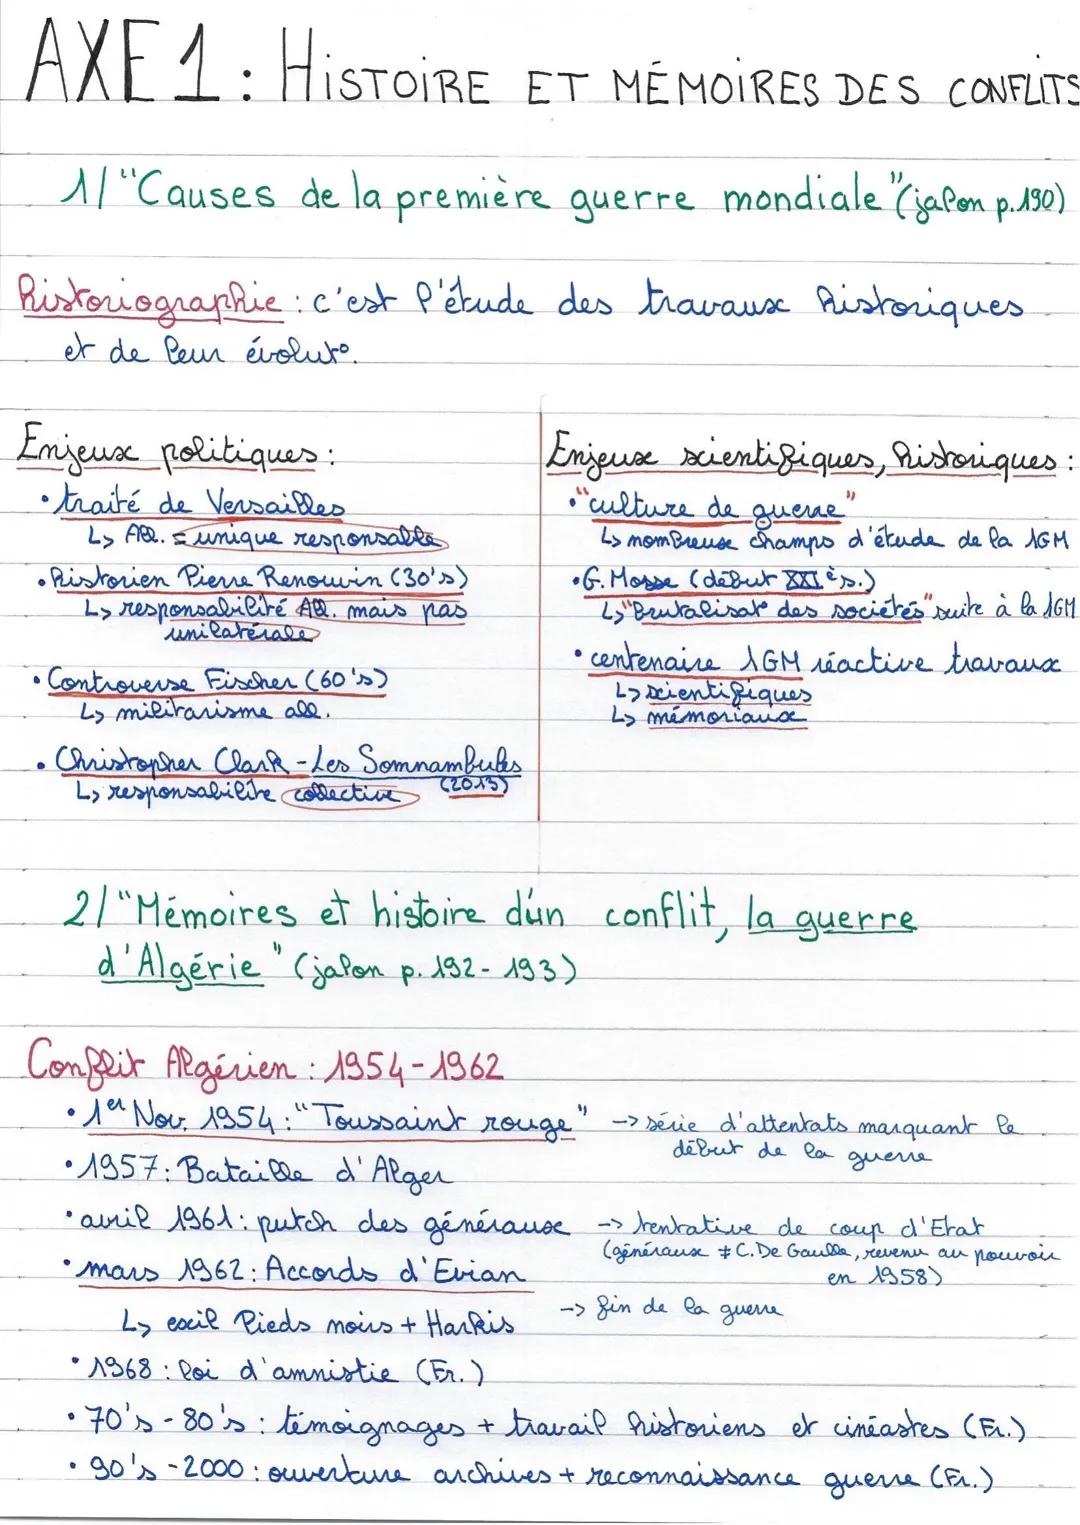 AXE 1 : HISTOIRE ET MÉMOIRES DES CONFLITS
1/ "Causes de la première guerre mondiale" (jalon p.190)
historiographie : c'est l'étude des travaux historiques
et de leur évolut°.
Enjeux politiques :
• traité de Versailles
↳ All. = unique responsable
• historien Pierre Renouvin (30's)
↳ responsabilité All. mais pas
unilatérale
• Controverse Fischer (60's)
↳ militarisme all.
• Christopher Clark - Les Somnambules
(2013)
↳ responsabilité collective
Enjeux scientifiques, historiques :
• "culture de guerre"
↳ nombreux champs d'étude de la 1GM
• G. Mosse (début XXIè s.)
↳ "Brutalisat° des sociétés" suite à la 1GM
• centenaire 1GM réactive travaux
↳ scientifiques
↳ mémoriaux
2/ "Mémoires et histoire d'un conflit, la guerre
d'Algérie" (jalon p. 192 - 193)
Conflit Algérien : 1954 - 1962
• 1er Nov. 1954 : "Toussaint rouge" → série d'attentats marquant le
début de la guerre
• 1957 : Bataille d'Alger
• avril 1961 : putch des généraux → tentative de coup d'Etat
(généraux ≠ C. De Gaulle, revenu au pouvoir
en 1958)
• mars 1962 : Accords d'Evian
→ fin de la guerre
↳ exil Pieds noirs + Harkis
• 1968 : loi d'amnistie (Fr.)
• 70's - 80's : témoignages + travail historiens et cinéastes (Fr.)
• 90's - 2000 : ouverture archives + reconnaissance guerre (Fr.)